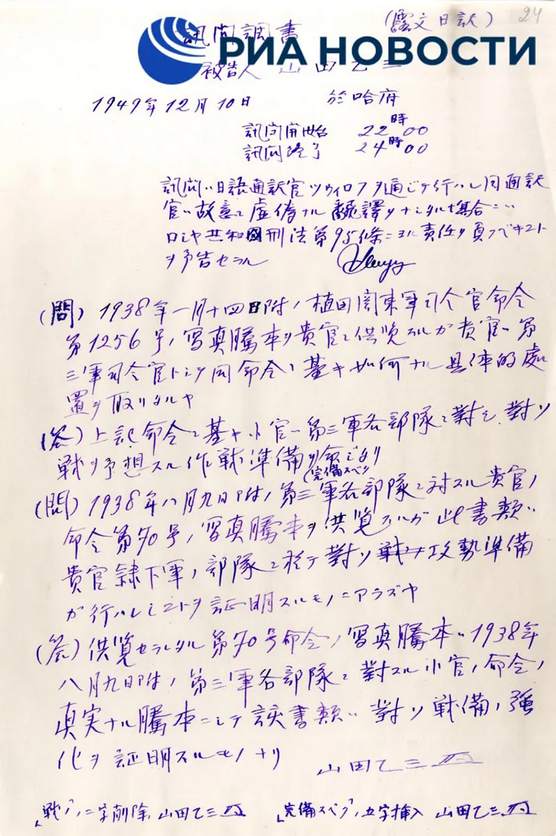 訊問調書 (露文日訳) 24
РИА НОВОСТИ
被告人 山田乙三
1949年12月10日 於哈府
訊問開始 22時00
訊問終了 24時00
訊問ハ日語通訳官ツウィロフヲ通ジテ行ハレ同通訳
官ハ故意ニ虚偽ナル飜譯ヲナシタル場合ニハ
ロシヤ共和国刑法第95條ニヨル責任ヲ負フベキコト
ヲ予告セラル
(問) 1938年一月十四日附ノ植田関東軍司令官命令
第1256号ノ写真騰本ヲ貴官ニ供覧スルガ貴官ハ第
三軍司令官トシテ同命令ニ基キ如何ナル具体的処
置ヲ取リタルヤ
(答) 上記命令ニ基キ小官ハ第三軍各部隊ニ對シ、對ソ
戦ヲ予想スル作戦準備ヲ命ジタリ
(完備スベク)
(問) 1938年八月九日附ノ第三軍各部隊ニ対スル貴官ノ
命令第90号ノ写真騰本ヲ供覧スルガ此書類ハ
貴官隷下軍ノ部隊ニ於テ對ソ戦ノ攻勢準備
ガ行ハレシコトヲ証明スルモノニアラズヤ
(答) 供覧セラレタル第90号命令ノ写真騰本ハ1938年
八月九日附ノ第三軍各部隊ニ對スル小官ノ命令ノ
真実ナル騰本ニシテ該書類ハ對ソ戦備ノ強
化ヲ証明スルモノナリ
山田乙三
「戦ノ」ノ二字削除 山田乙三 「完備スベク」ノ五字挿入 山田乙三